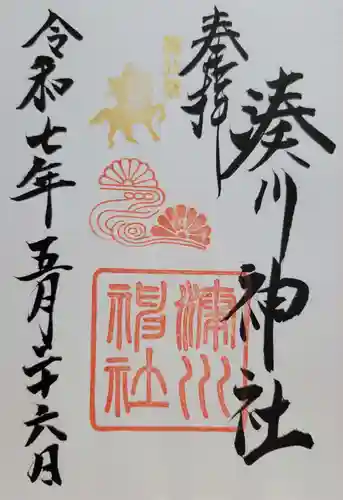 湊川神社
奉拝
湊川
神社
令和七年五月二十六日